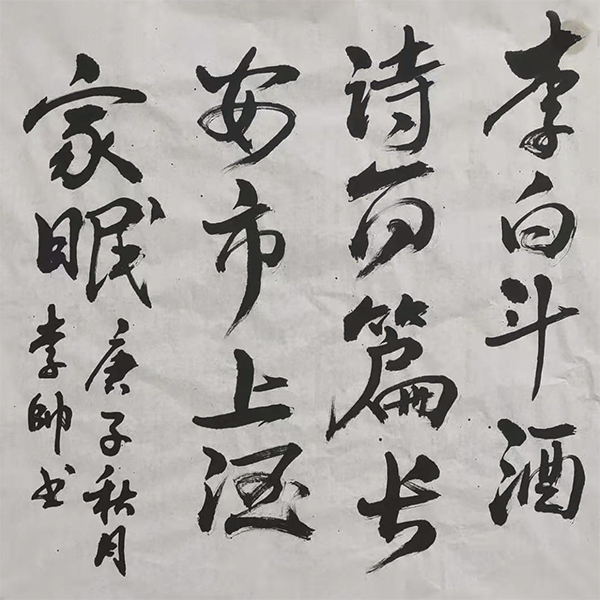 李白斗酒
诗百篇长
安市上酒
家眠
庚子秋月
李帅书